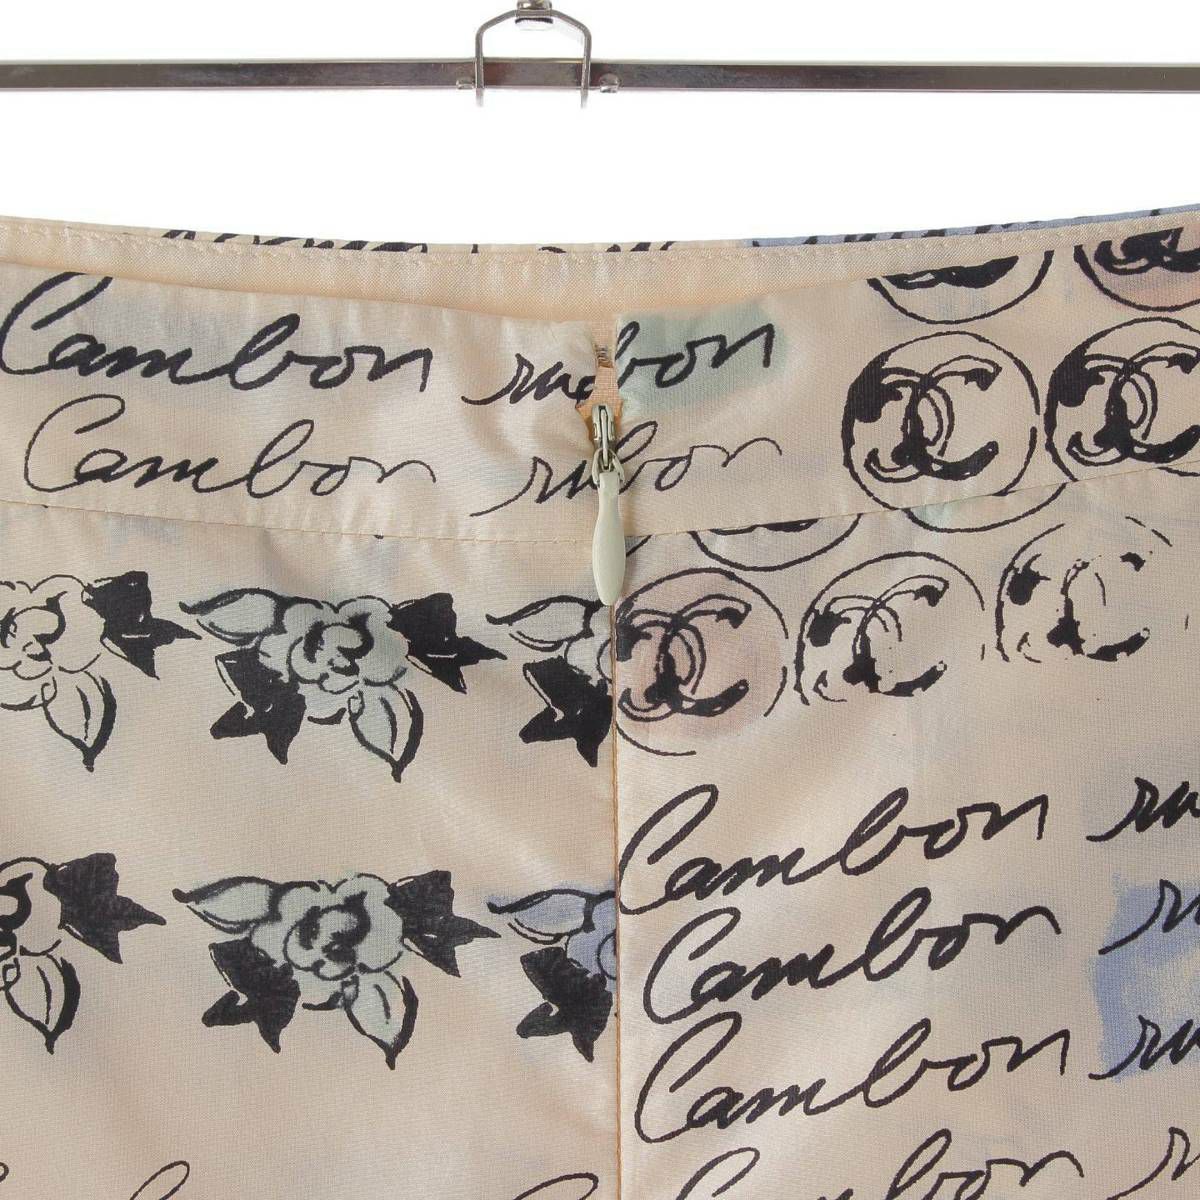 Cambon rue bon
Cambon ru bon
Cambon ru
Cambon
Cambon ru